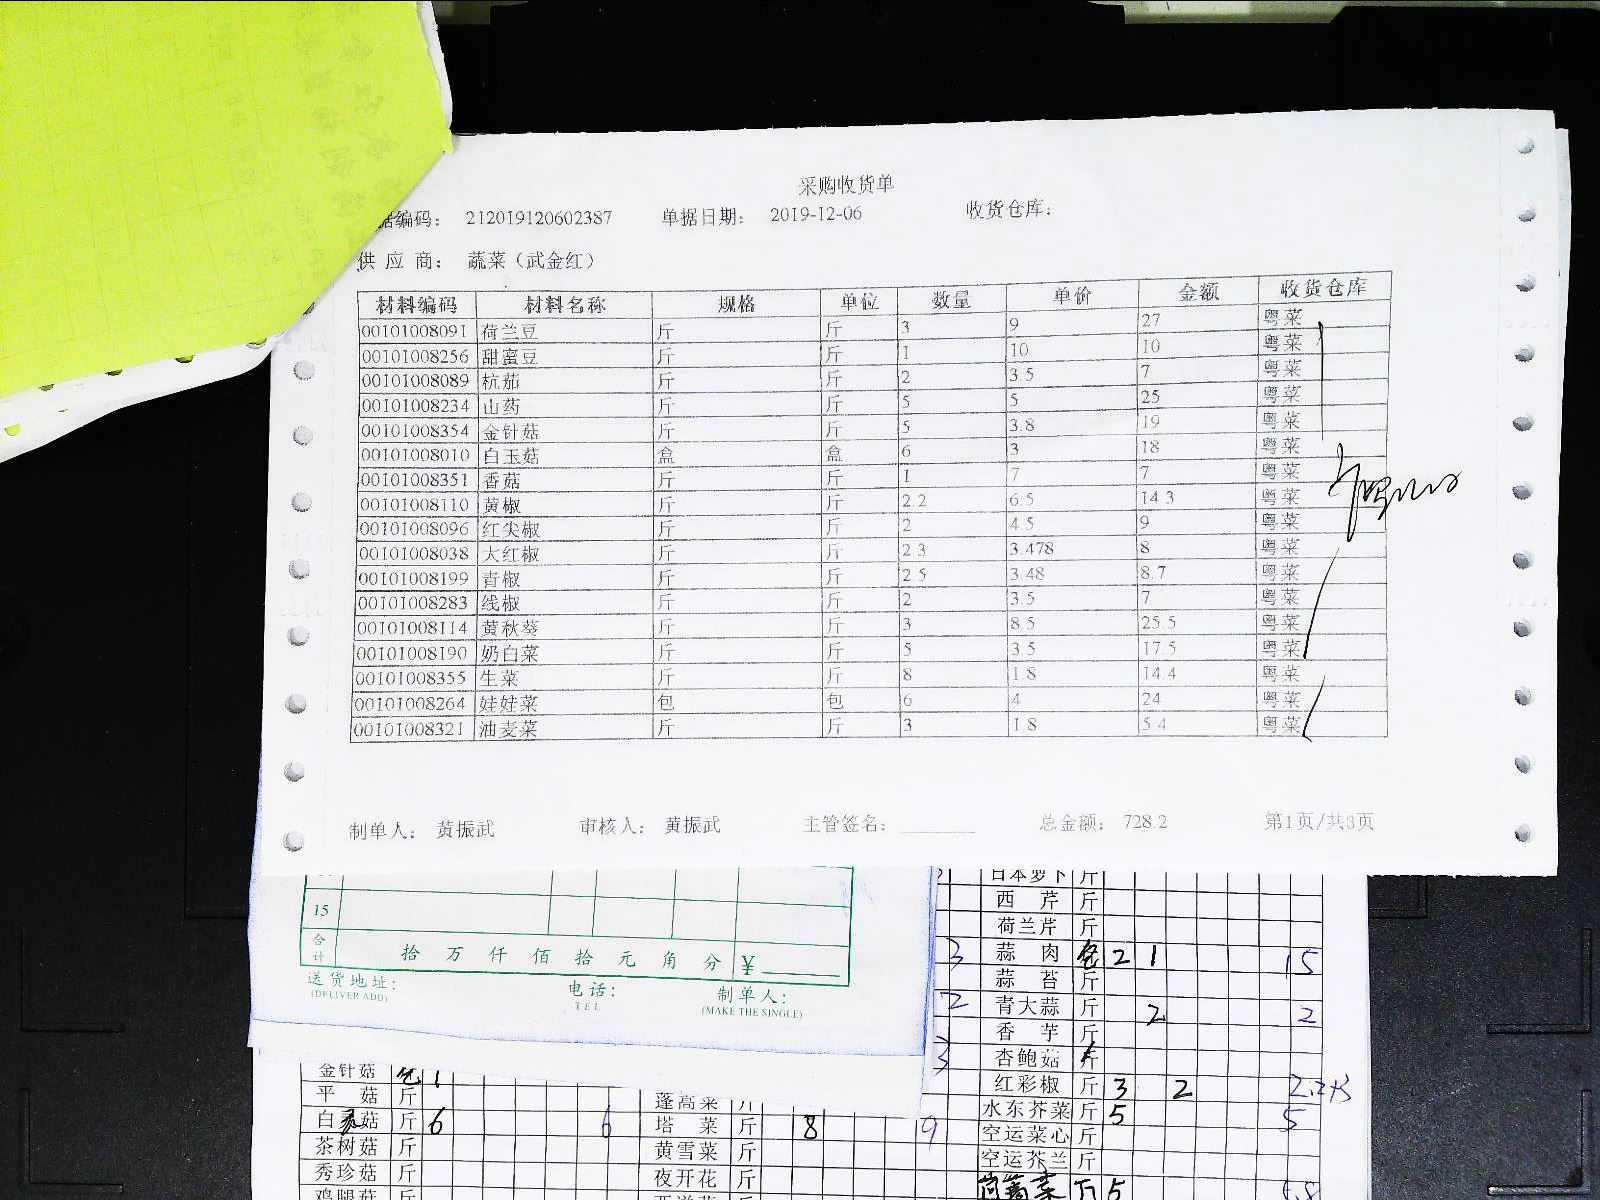 采购收货单
据编码： 212019120602387 单据日期： 2019-12-06 收货仓库：
供 应 商： 蔬菜（武金红）
材料编码 材料名称 规格 单位 数量 单价 金额 收货仓库
00101008091 荷兰豆 斤 斤 3 9 27 粤菜
00101008256 甜蜜豆 斤 斤 1 10 10 粤菜
00101008089 杭茄 斤 斤 2 3.5 7 粤菜
00101008234 山药 斤 斤 5 5 25 粤菜
00101008354 金针菇 斤 斤 5 3.8 19 粤菜
00101008010 白玉菇 盒 盒 6 3 18 粤菜
00101008351 香菇 斤 斤 1 7 7 粤菜
00101008110 黄椒 斤 斤 2.2 6.5 14.3 粤菜
00101008096 红尖椒 斤 斤 2 4.5 9 粤菜
00101008038 大红椒 斤 斤 2.3 3.478 8 粤菜
00101008199 青椒 斤 斤 2.5 3.48 8.7 粤菜
00101008283 线椒 斤 斤 2 3.5 7 粤菜
00101008114 黄秋葵 斤 斤 3 8.5 25.5 粤菜
00101008190 奶白菜 斤 斤 5 3.5 17.5 粤菜
00101008355 生菜 斤 斤 8 1.8 14.4 粤菜
00101008264 娃娃菜 包 包 6 4 24 粤菜
00101008321 油麦菜 斤 斤 3 1.8 5.4 粤菜
制单人： 黄振武 审核人： 黄振武 主管签名： 总金额： 728.2 第1页/共3页
15
合计 拾 万 仟 佰 拾 元 角 分 ¥
送货地址： 电话： 制单人：
(DELIVER ADD) TEL (MAKE THE SINGLE)
日本萝卜 斤
西 芹 斤
荷兰芹 斤
3 蒜 肉 包 2 1 15
蒜 苔 斤
2 青大蒜 斤 2 2
香 芋 斤
3 杏鲍菇 斤
红彩椒 斤 3 2 2.2
水东芥菜 斤 5 5
空运菜心 斤
空运芥兰 斤
茼蒿菜 斤 5 5.8
金针菇 包 1
平 菇 斤
白 菇 斤 6 6
茶树菇 斤
秀珍菇 斤
鸡腿菇 斤
蓬蒿菜 斤
塔 菜 斤 8 9
黄雪菜 斤
夜开花 斤